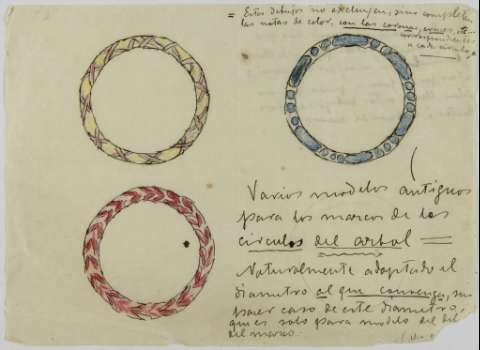 = Estos dibujos no excluyen, sino completan
las notas de color, con las coronas,
correspondientes
a cada circulo
Varios modelos antiguos
para los marcos de los
circulos del arbol =
Naturalmente adaptado el
diametro al que convenga, sin
hacer caso de este diametro,
que es solo para modelo del
del marco.